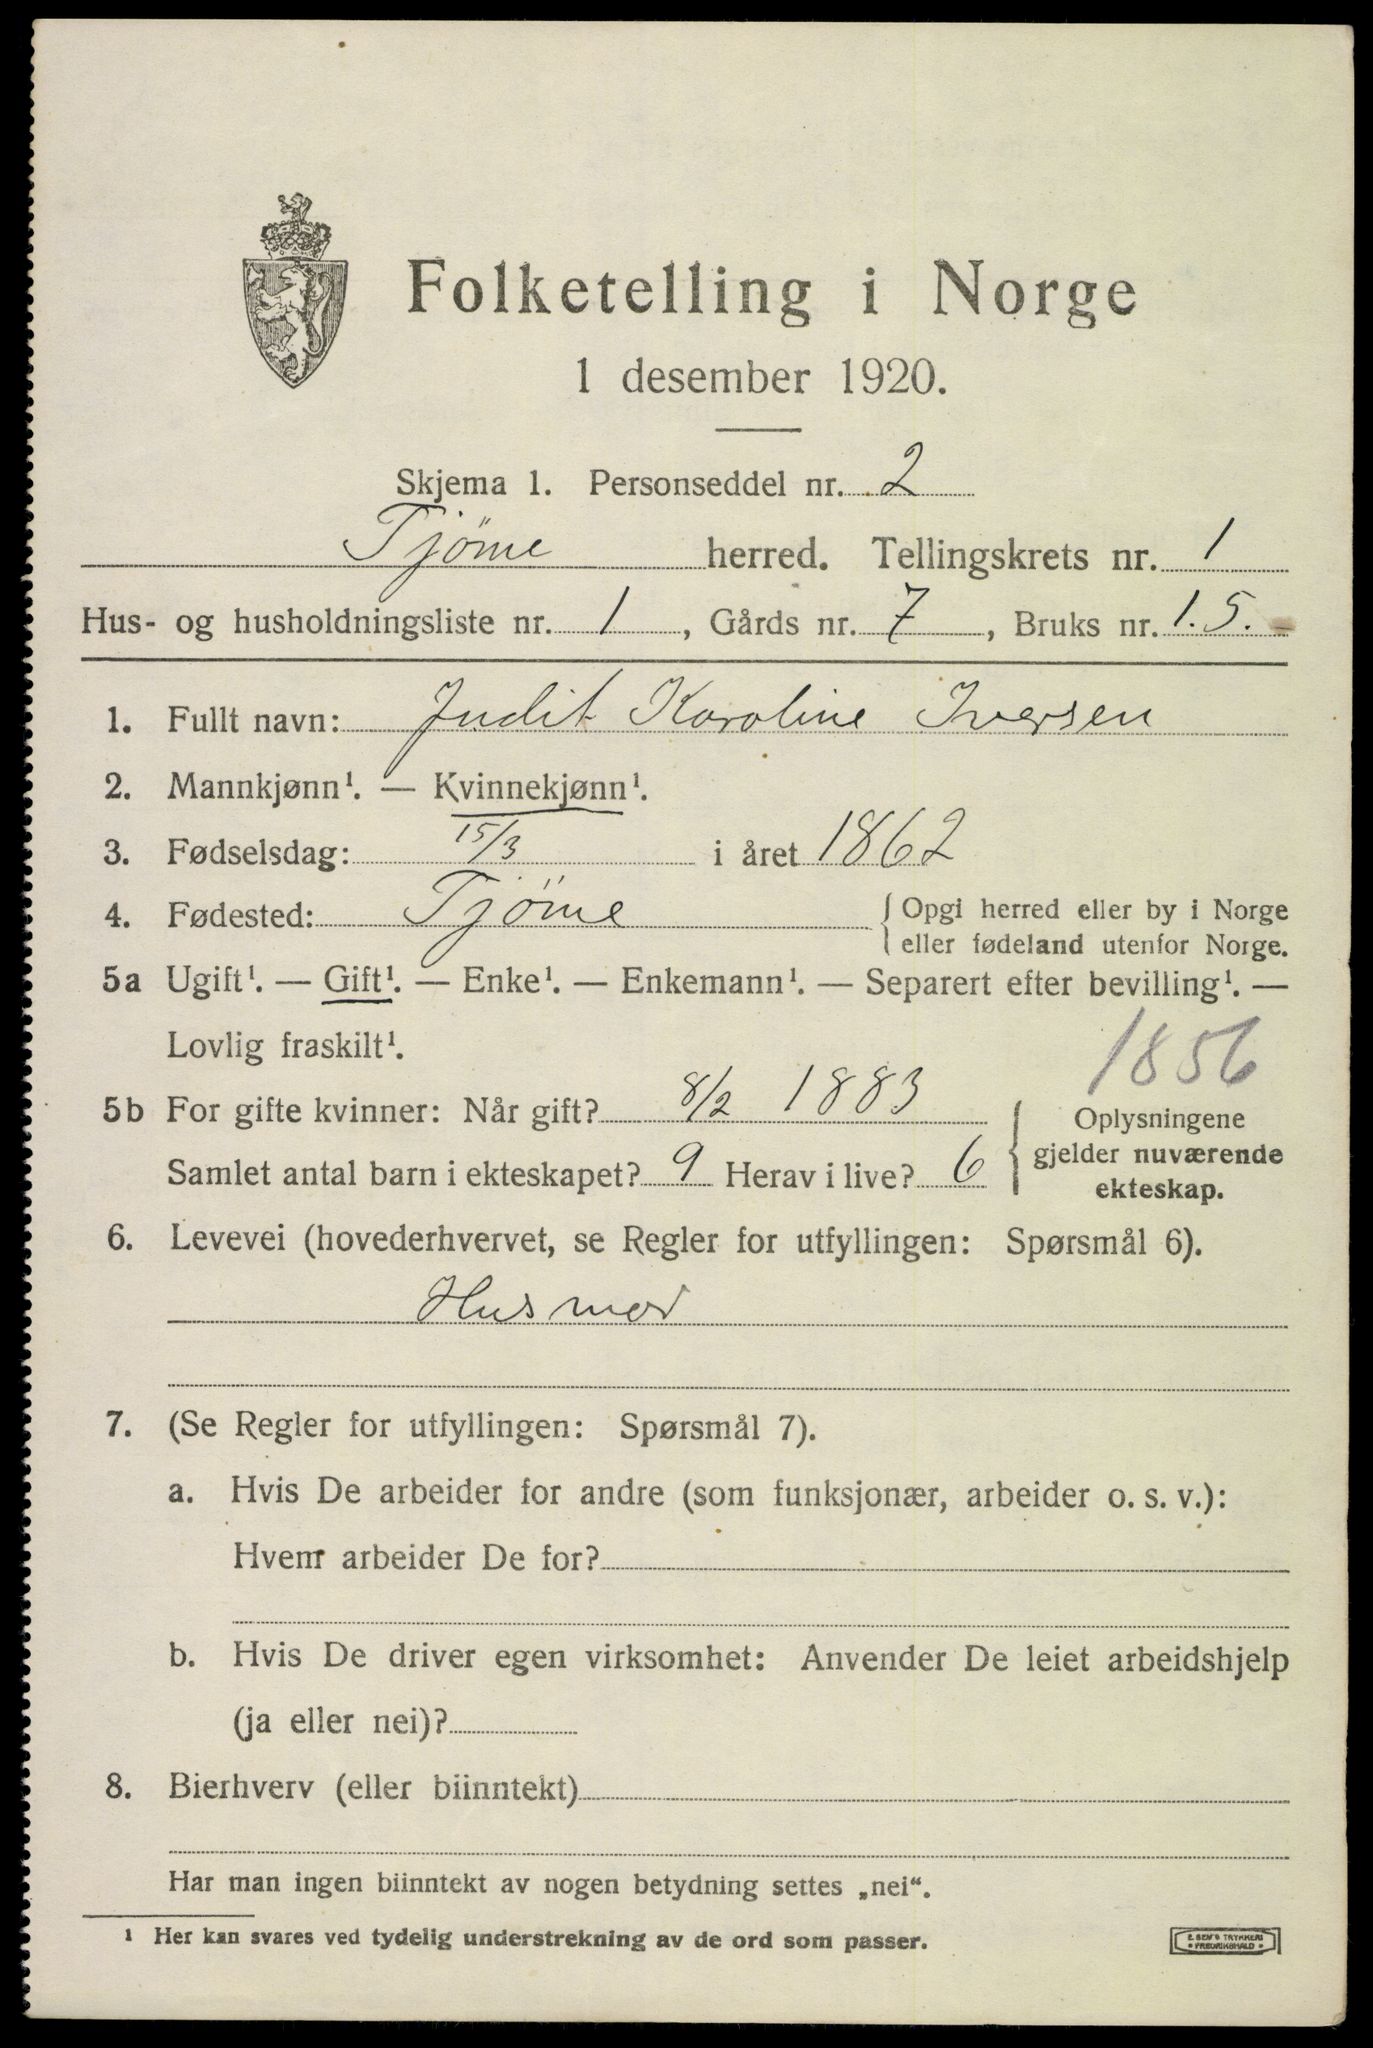 Folketelling i Norge
1 desember 1920.
Skjema 1. Personseddel nr. 2
Tjöme herred. Tellingskrets nr. 1
Hus- og husholdningsliste nr. 1, Gårds nr. 7, Bruks nr. 1.5.
1. Fullt navn: Judit Karoline Iversen
2. Mannkjønn¹. — Kvinnekjønn¹.
3. Fødselsdag: 15/3 i året 1862
4. Fødested: Tjöme { Opgi herred eller by i Norge
eller fødeland utenfor Norge.
5a Ugift¹. — Gift¹. — Enke¹. — Enkemann¹. — Separert efter bevilling¹. —
Lovlig fraskilt¹.
1856
5b For gifte kvinner: Når gift? 8/2 1883
Samlet antal barn i ekteskapet? 9 Herav i live? 6
{ Oplysningene
gjelder nuværende
ekteskap.
6. Levevei (hovederhvervet, se Regler for utfyllingen: Spørsmål 6).
Husmor
7. (Se Regler for utfyllingen: Spørsmål 7).
a. Hvis De arbeider for andre (som funksjonær, arbeider o. s. v.):
Hvem arbeider De for?
b. Hvis De driver egen virksomhet: Anvender De leiet arbeidshjelp
(ja eller nei)?
8. Bierhverv (eller biinntekt)
Har man ingen biinntekt av nogen betydning settes „nei“.
¹ Her kan svares ved tydelig understrekning av de ord som passer.
E. SEM'S TRYKKERI
• FREDRIKSHALD •